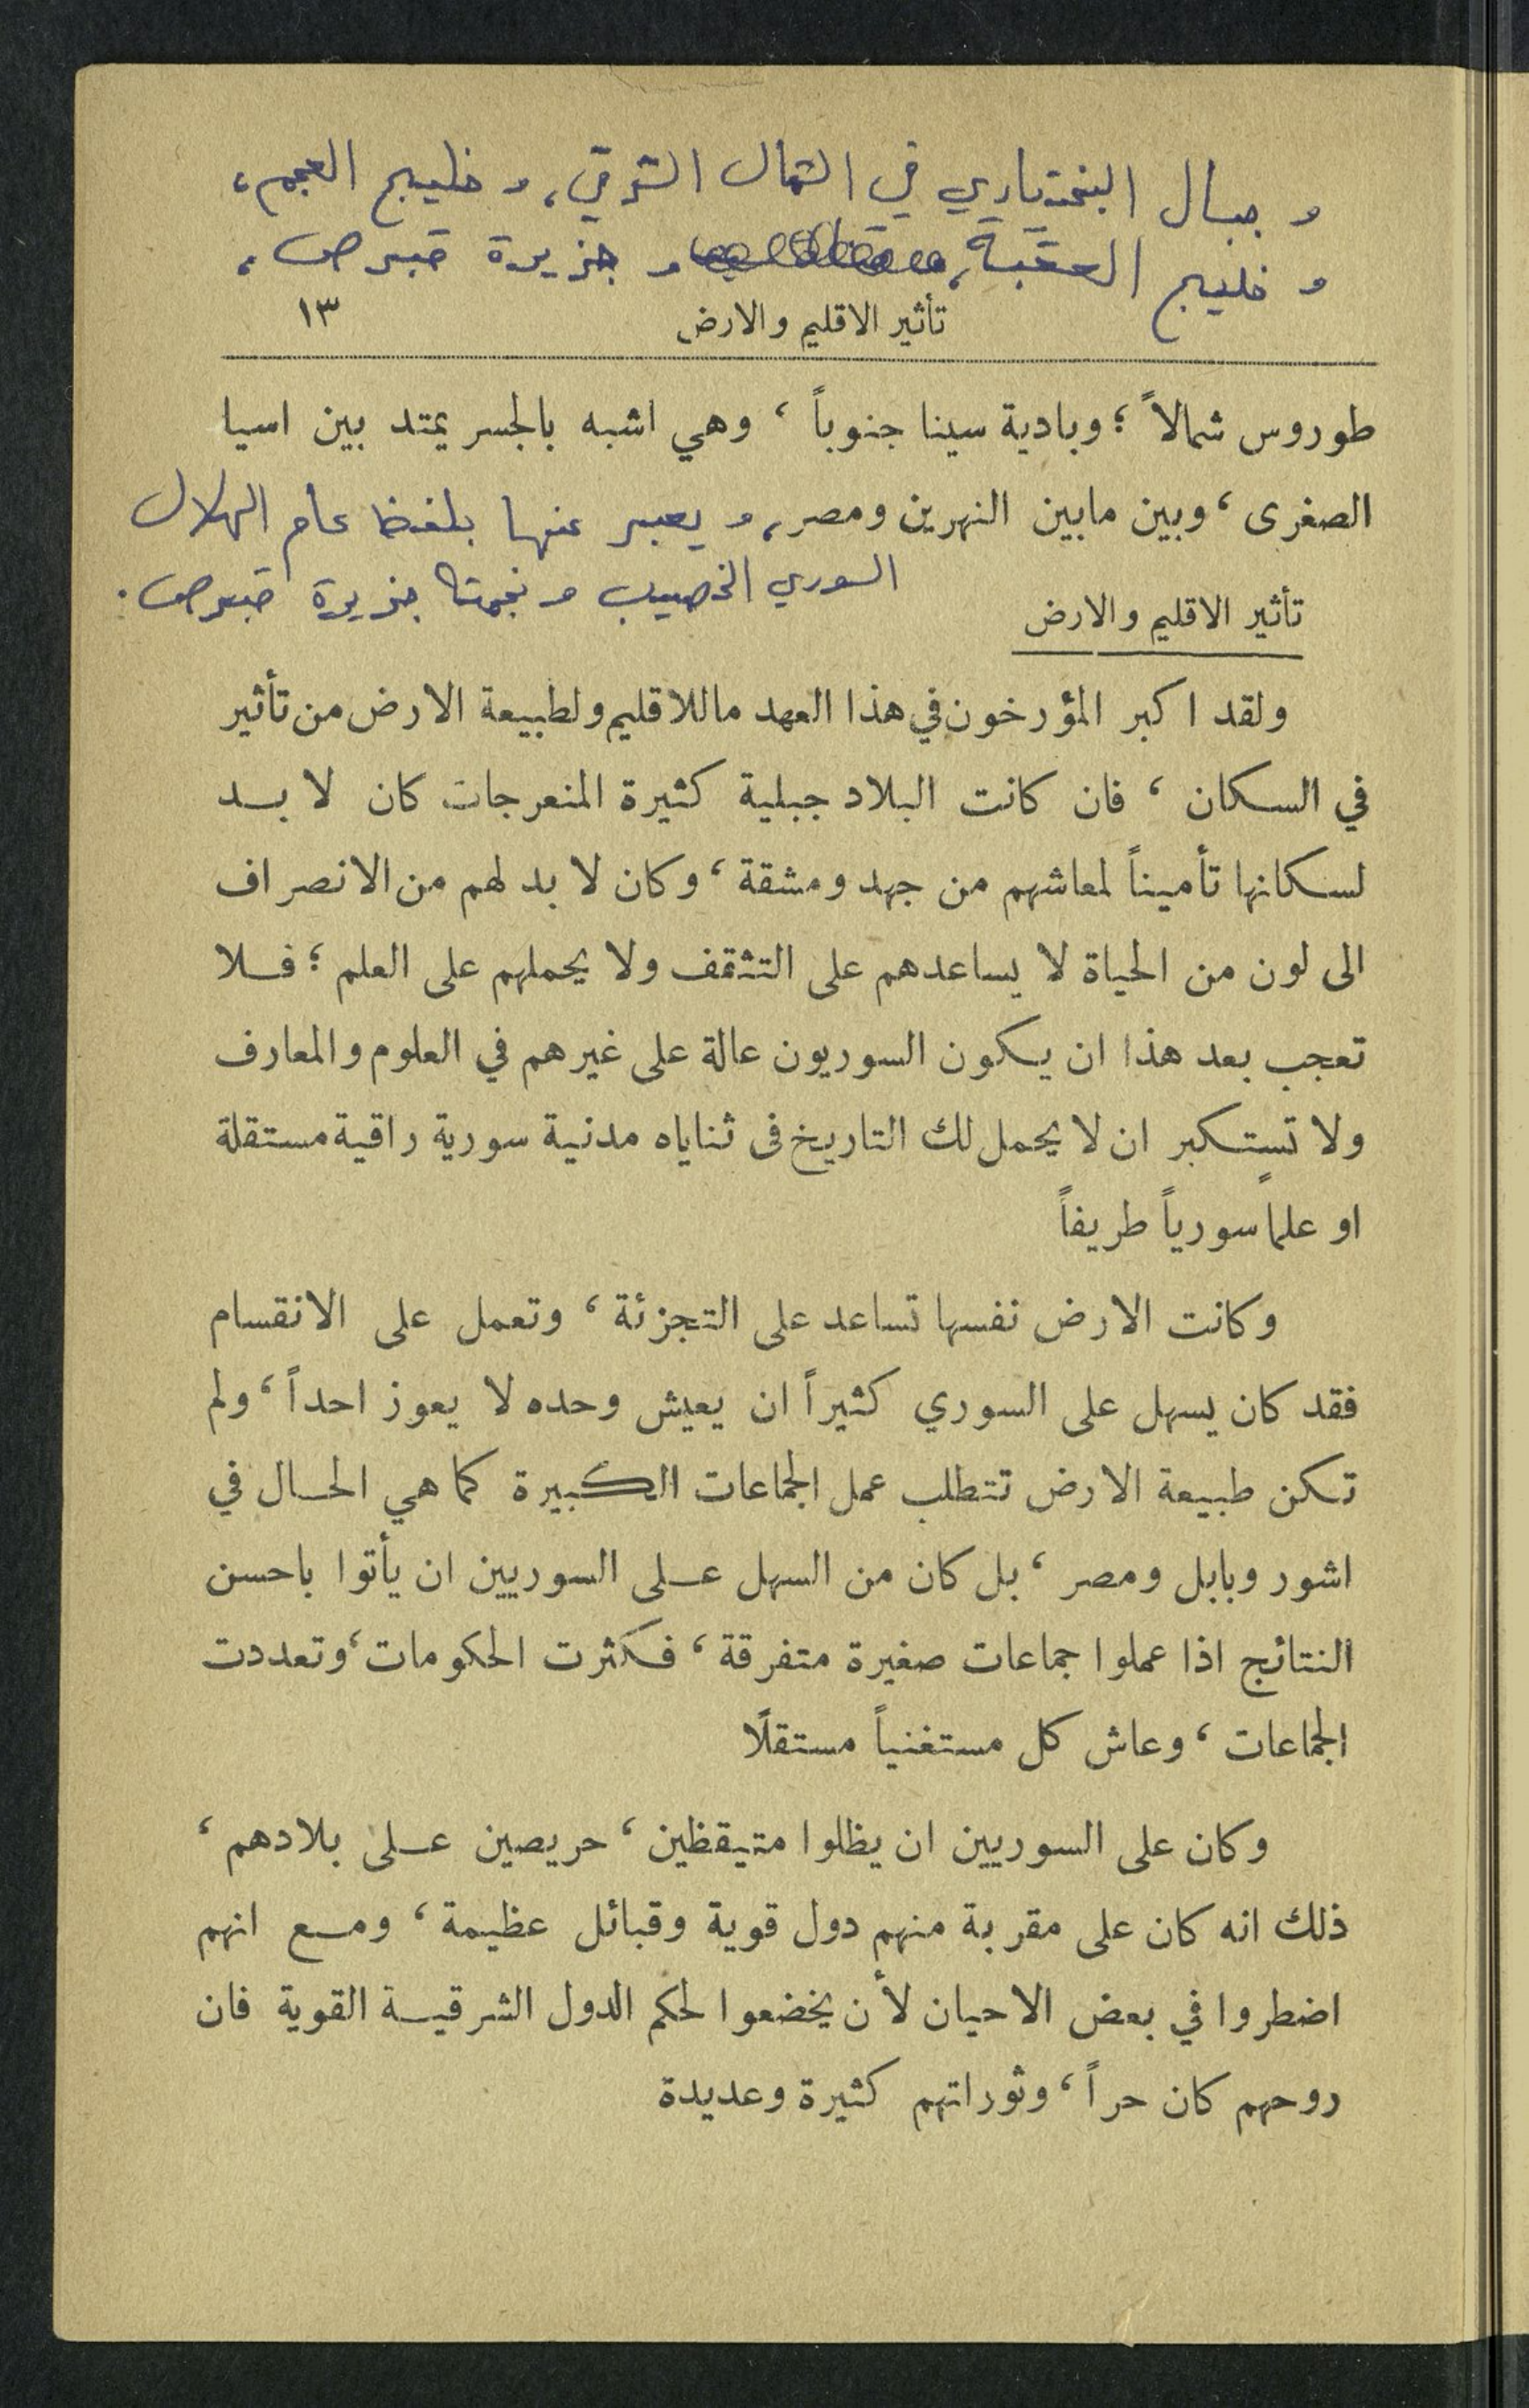 و جبال البختياري في الشمال الشرقي، و خليج العجم،
و خليج العقبة، و جزيرة قبرص،
تأثير الاقليم والارض ١٣
طوروس شمالاً ؛ وبادية سينا جنوباً ، وهي اشبه بالجسر يمتد بين اسيا
الصغرى ، وبين مابين النهرين ومصر، و يعبر عنها بلفظ عام الهلال
السوري الخصيب و نجمتها جزيرة قبرص.
تأثير الاقليم والارض
ولقد اكبر المؤرخون في هذا العهد ماللاقليم ولطبيعة الارض من تأثير
في السكان ، فان كانت البلاد جبلية كثيرة المنعرجات كان لا بد
لسكانها تأميناً لمعاشهم من جهد ومشقة ، وكان لا بد لهم من الانصراف
الى لون من الحياة لا يساعدهم على التثقف ولا يحملهم على العلم ؛ فلا
تعجب بعد هذا ان يكون السوريون عالة على غيرهم في العلوم والمعارف
ولا تستكبر ان لا يحمل لك التاريخ فى ثناياه مدنية سورية راقية مستقلة
او علماً سورياً طريفاً
وكانت الارض نفسها تساعد على التجزئة ، وتعمل على الانقسام
فقد كان يسهل على السوري كثيراً ان يعيش وحده لا يعوز احداً ، ولم
تكن طبيعة الارض تتطلب عمل الجماعات الكبيرة كما هي الحال في
اشور وبابل ومصر ، بل كان من السهل على السوريين ان يأتوا باحسن
النتائج اذا عملوا جماعات صغيرة متفرقة ، فكثرت الحكومات ، وتعددت
الجماعات ، وعاش كل مستغنياً مستقلًا
وكان على السوريين ان يظلوا متيقظين ، حريصين على بلادهم ،
ذلك انه كان على مقربة منهم دول قوية وقبائل عظيمة ، ومع انهم
اضطروا في بعض الاحيان لأن يخضعوا لحكم الدول الشرقية القوية فان
روحهم كان حراً ، وثوراتهم كثيرة وعديدة